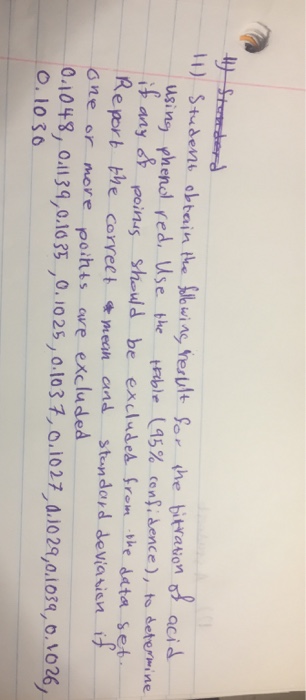 11) Standard
11) Student obtain the following result for the titration of acid
using phenol red. Use the table (95% confidence), to determine
if any of points should be excluded from the data set.
Report the correct mean and standard deviation if
one or more points are excluded
0.1048, 0.1139, 0.1035, 0.1025, 0.1037, 0.1027, 0.1029, 0.1039, 0.1026,
0.1030